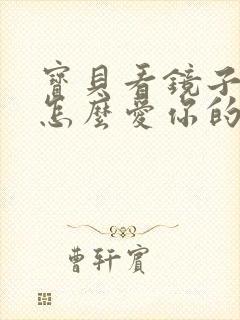 寶貝看鏡子
怎麼愛你的
曹軒賓